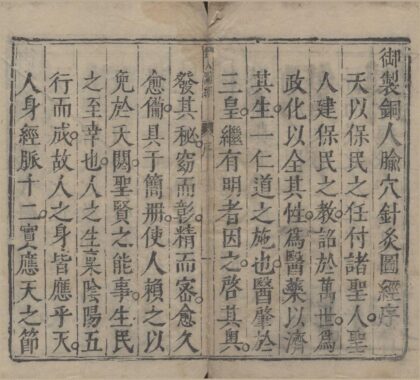 御製銅人腧穴針灸圖經序
天以保民之任付諸聖人聖
人建保民之教詔於萬世為
政化以全其性為醫藥以濟
其生一仁道之施也醫肇於
三皇繼有明者因之啓其奥
發其秘窈而彰精而密愈久
愈備具于簡冊使人賴之以
免於夭閼聖賢之能事生民
之至幸也人之生稟陰陽五
行而成故人之身皆應乎天
人身經脈十二實應天之節